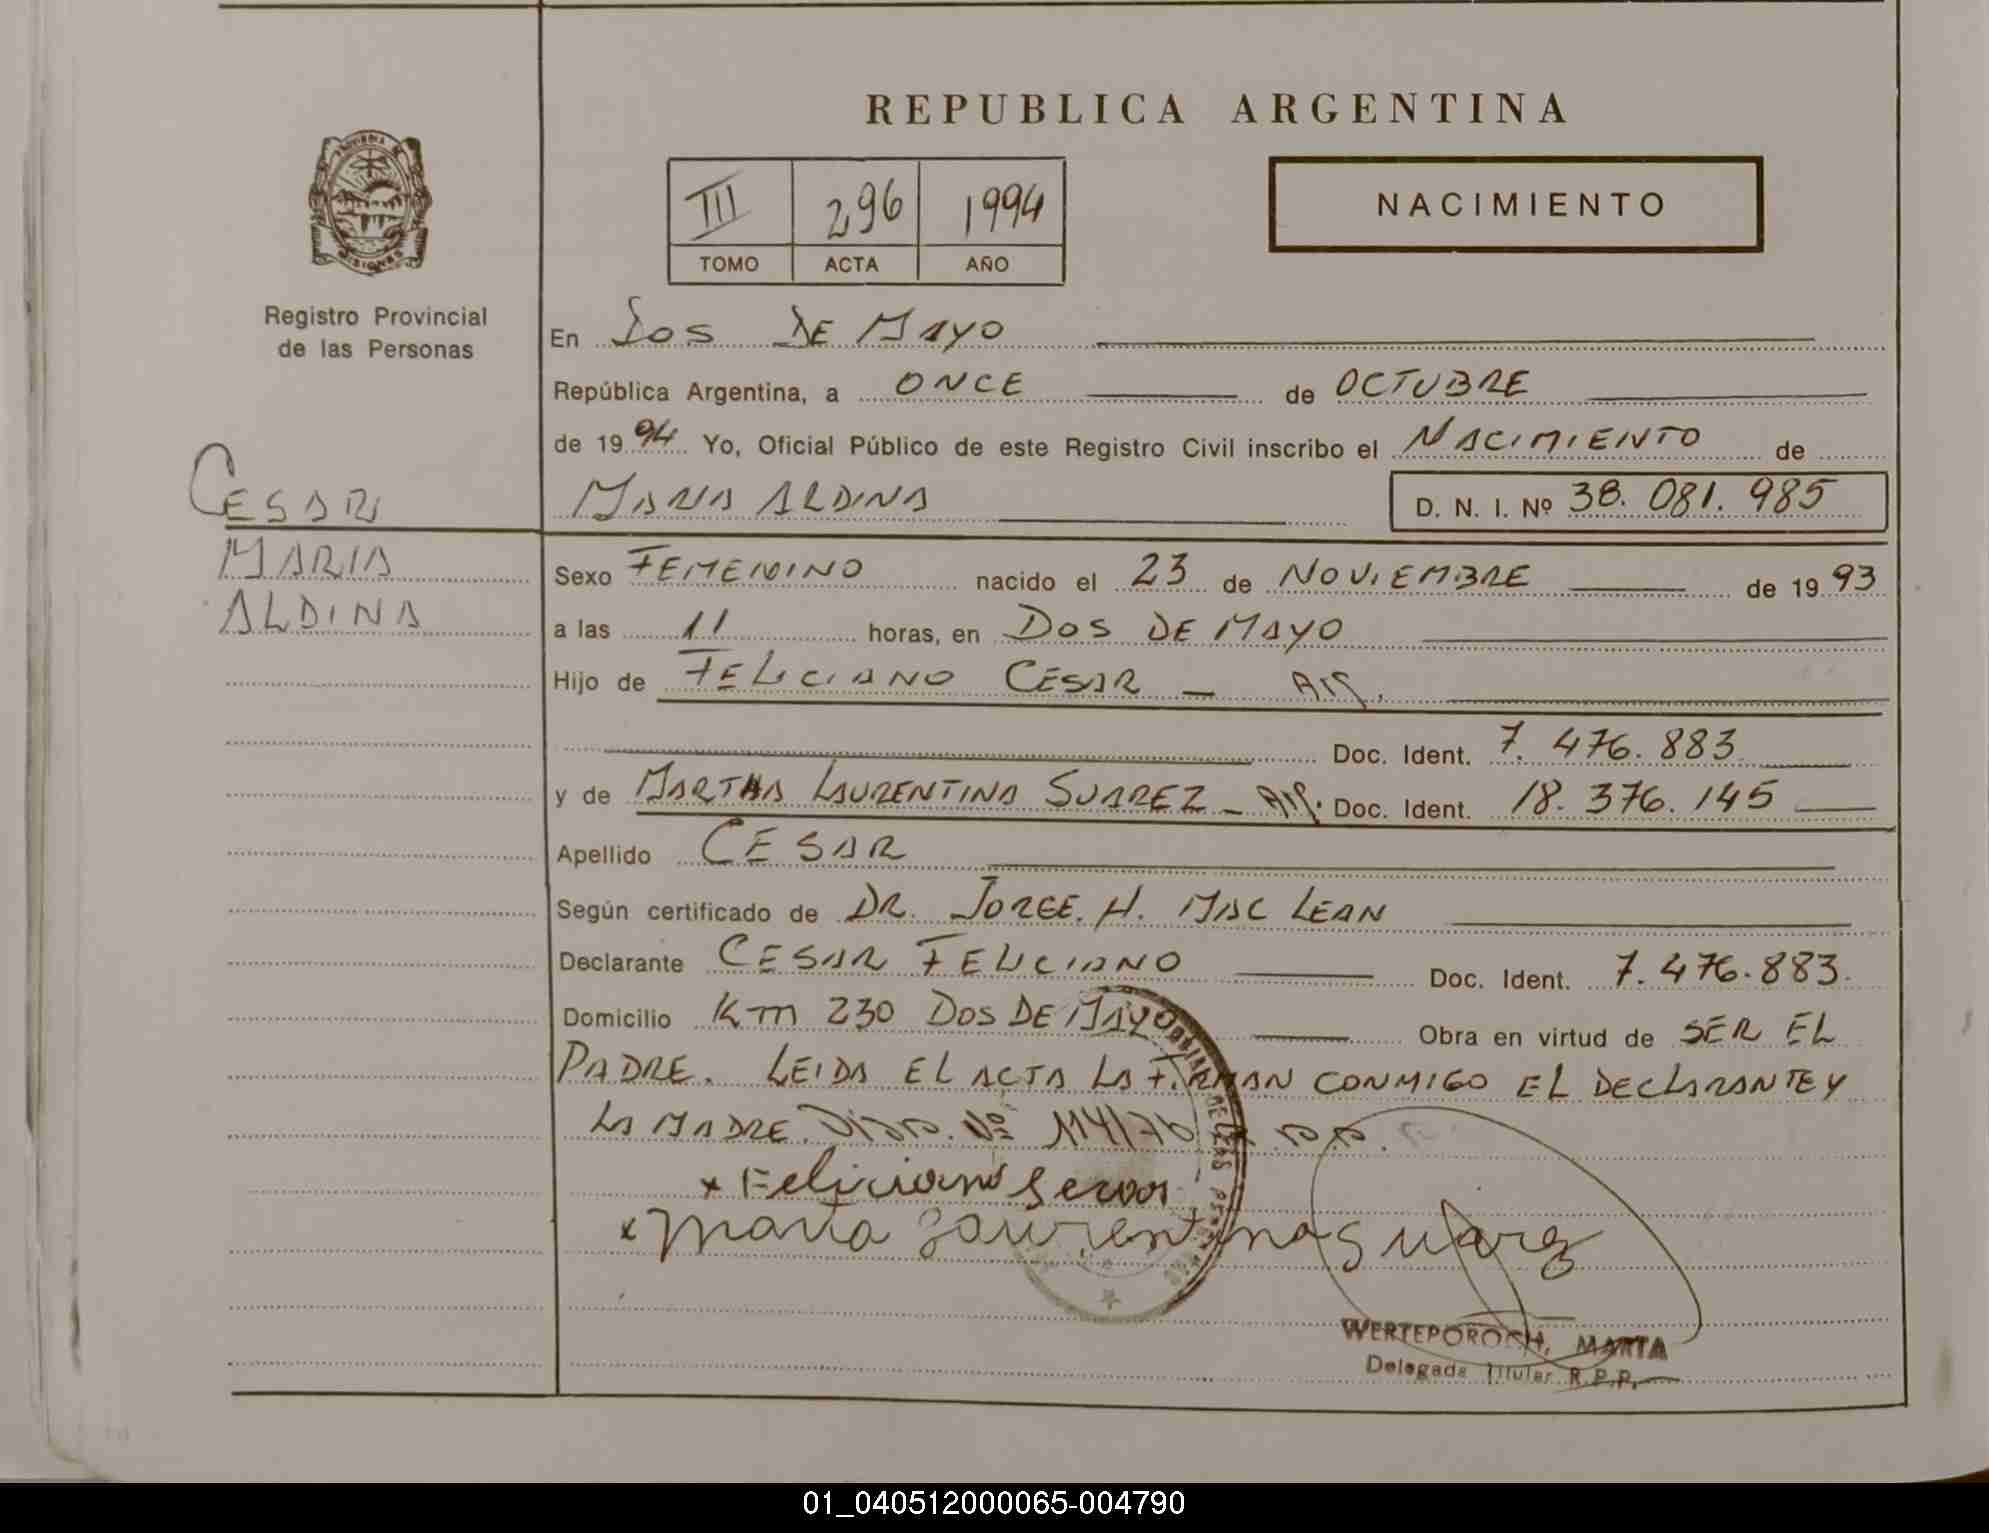 REPUBLICA ARGENTINA
III 296 1994
TOMO ACTA AÑO
NACIMIENTO
PROVINCIA DE MISIONES
Registro Provincial
de las Personas
CESAR
MARIA
ALDINA
En DOS DE MAYO
República Argentina, a ONCE de OCTUBRE
de 1994 Yo, Oficial Público de este Registro Civil inscribo el NACIMIENTO de
MARIA ALDINA D. N. I. Nº 38.081.985
Sexo FEMENINO nacido el 23 de NOVIEMBRE de 1993
a las 11 horas, en DOS DE MAYO
Hijo de FELICIANO CESAR - AR.
Doc. Ident. 7.476.883
y de MARTHA LAURENTINA SUAREZ - AR. Doc. Ident. 18.376.145
Apellido CESAR
Según certificado de DR. JORGE. H. MAC LEAN
Declarante CESAR FELICIANO Doc. Ident. 7.476.883.
Domicilio Km 230 DOS DE MAYO Obra en virtud de SER EL
PADRE. LEIDA EL ACTA LA FIRMAN CONMIGO EL DECLARANTE Y
LA MADRE. Disp. Nº 114/76
x Feliciano
x Marta Laurentina Suarez
WERTEPOROCH, MARTA
Delegada Titular R.P.P.
01_040512000065-004790